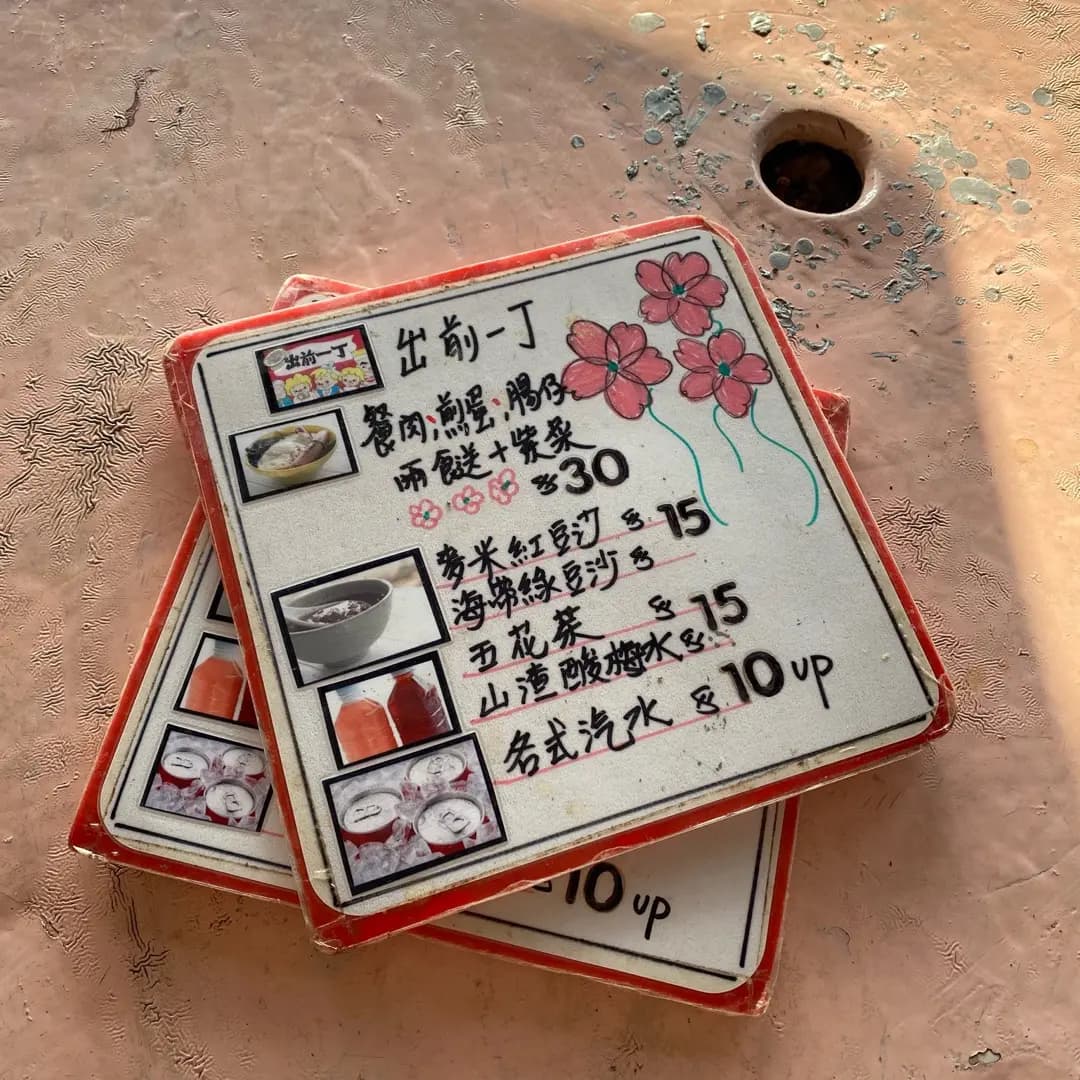 出前一丁
出前一丁
餐肉、煎蛋、腸仔
兩餸送+紫菜
$30
麥米紅豆沙 $15
海帶綠豆沙 $
五花茶 $15
山渣酸梅水 $
各式汽水 $10 up
$10 up